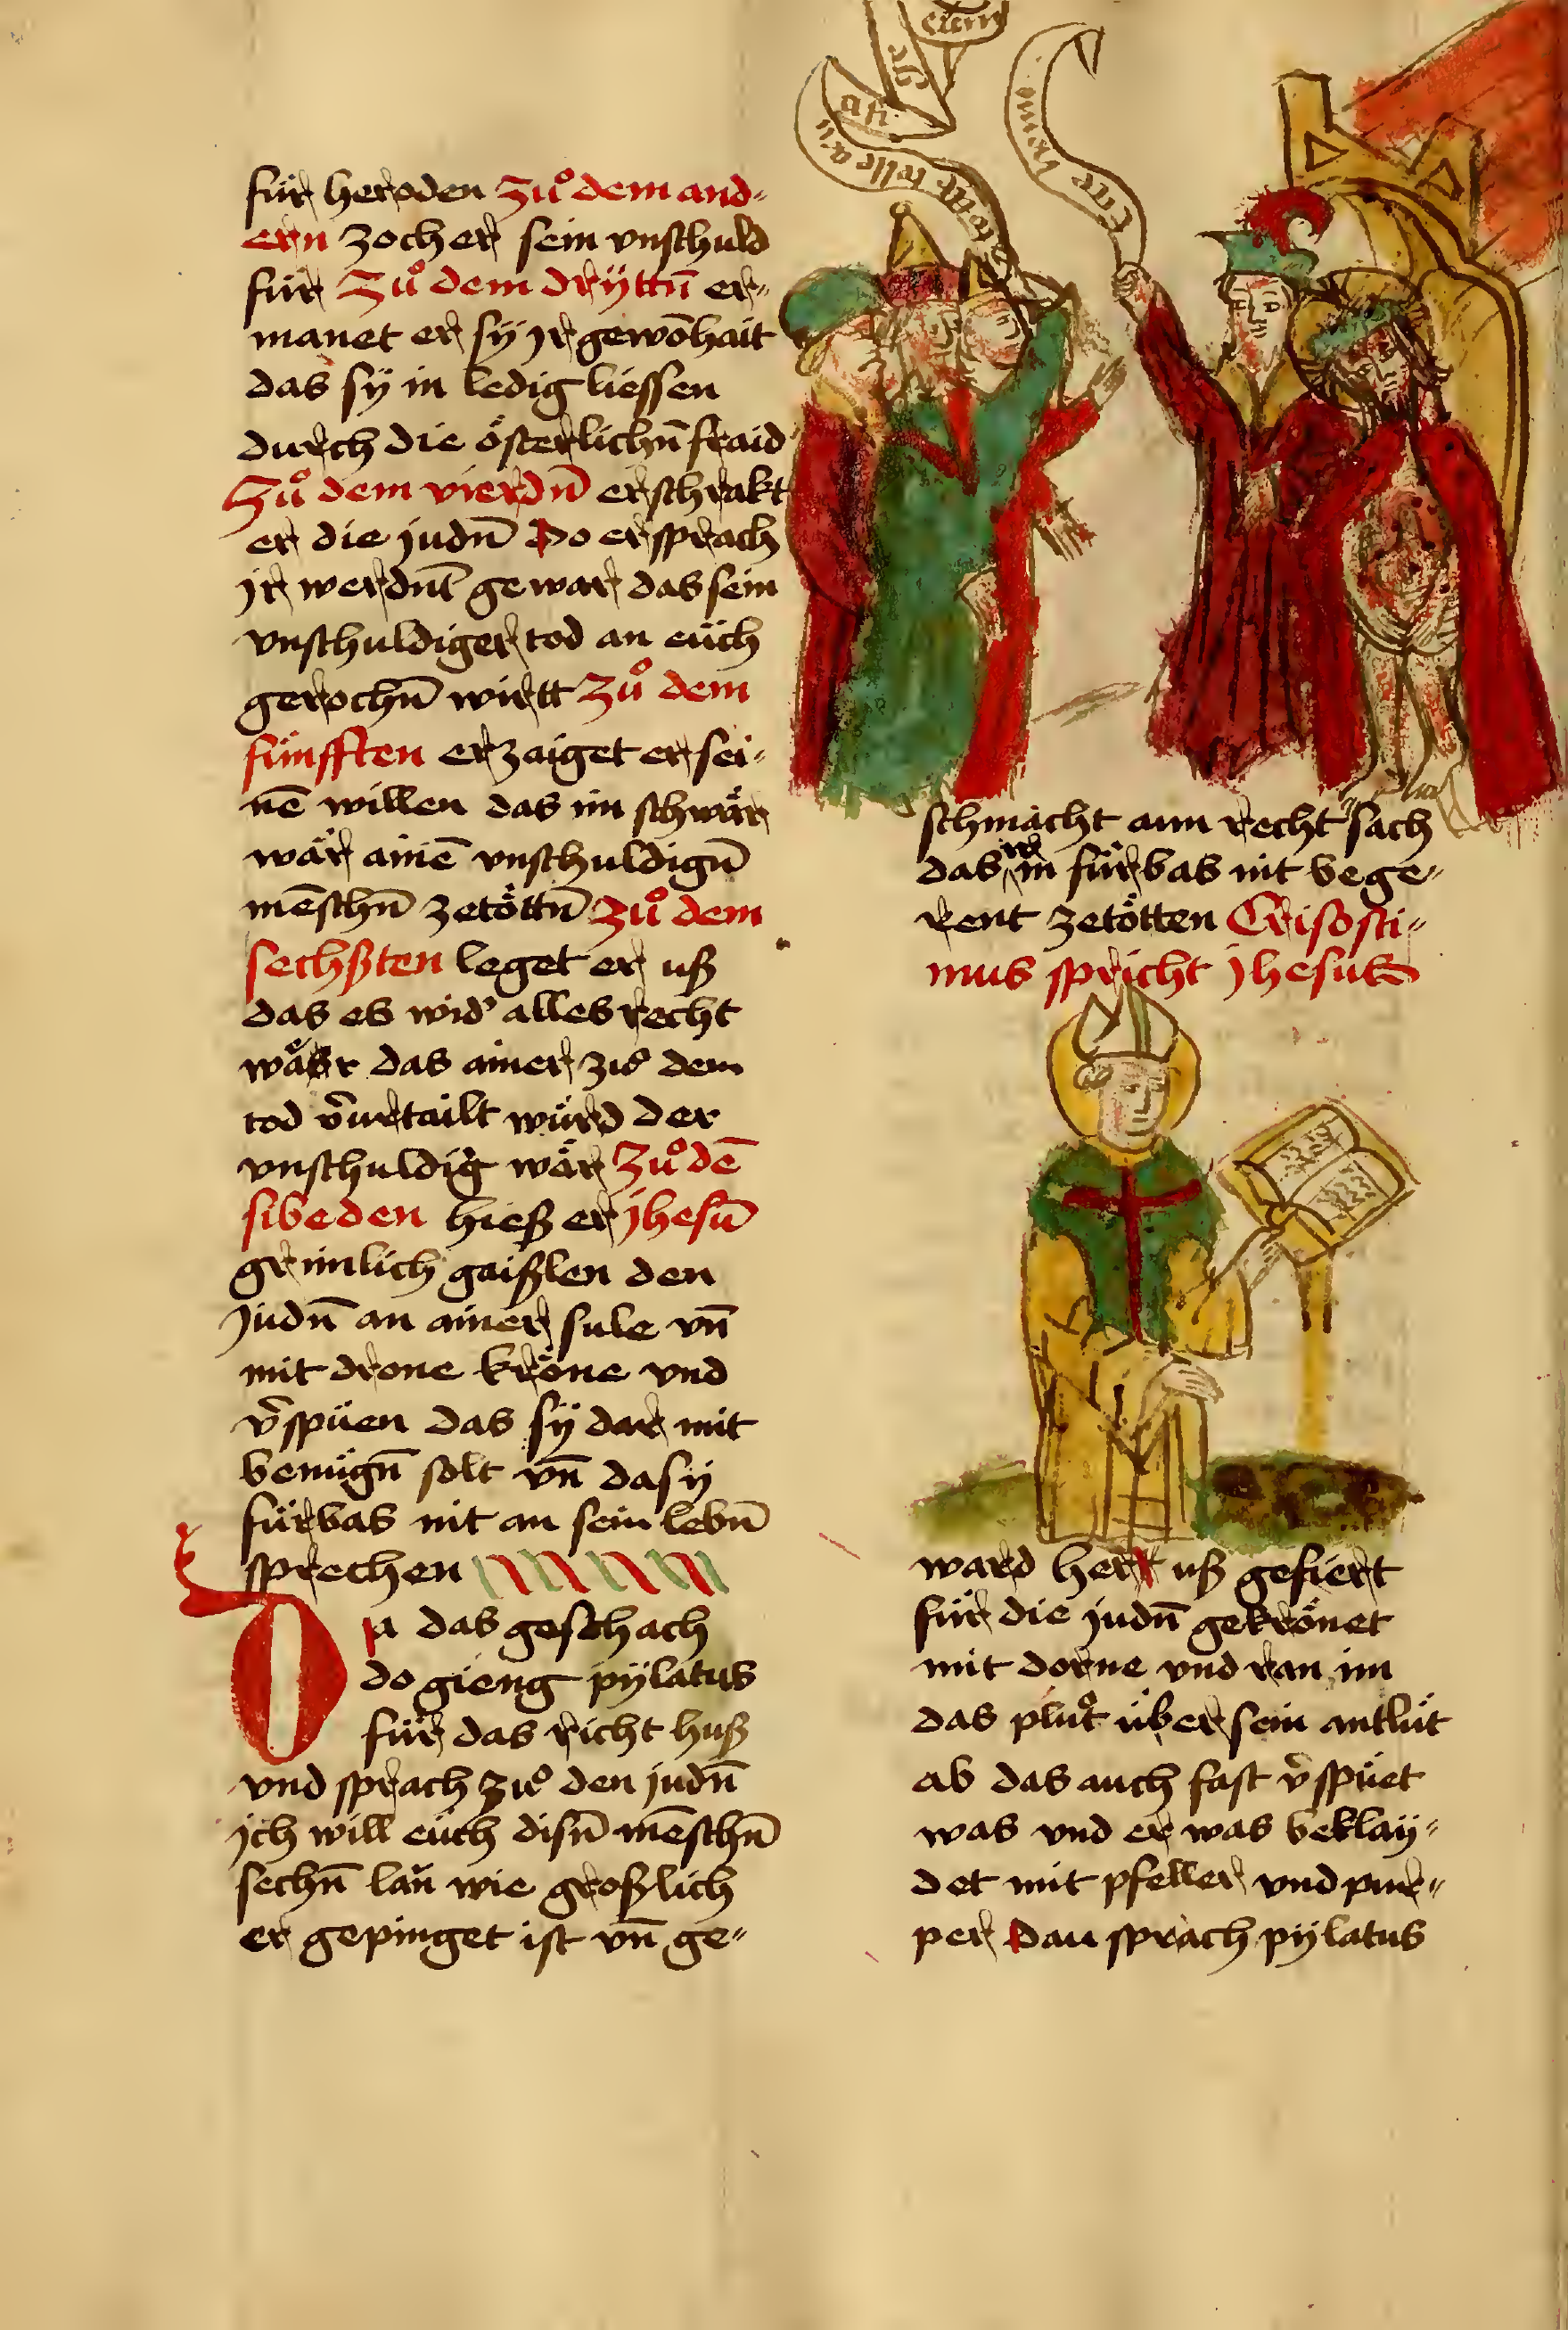 für heroden Zuͦ dem and-
ern zoch er sein vnschuld
für Zuͦ dem drÿttn̄ er-
manet er sÿ jr gewōhait
das sÿ in ledig liessen
durch die österlichn̄ fraid
Zuͦ dem vierdn̄ erschrakt
er die judn̄ Do er sprach
jr werdnt̄ gewar das sein
vnschuldiger tod an eüch
gerochn̄ wirtt Zuͦ dem
fünfften erzaiget er sei-
nē willen das im schwär
wär ainē vnschuldign̄
mēschn̄ zetöttn̄ Zuͦ dem
sechßten leget er uß
das es wid' alles recht
wäsr das ainer zuͦ dem
tod v̄urtailt würd der
vnschuldig wär Zuͦ dē
sibeden hieß er jhesū
grimlich gaißlen den
judn̄ an ainer sule vn̄
mit drone kröne vnd
v̄spüen das sÿ dar mit
benügn̄ solt vn̄ dasÿ
fürbas nit an sein lebn̄
sprechen
Da das geschach
do gieng pÿlatus
für das richt huß
vnd sprach zuͦ den judn̄
jch will eüch disn̄ mēschn̄
sechn̄ lan̆ wie großlich
er gepinget ist vn̄ ge-
ecce homo
tolle
schmächt ann recht sach
das ir in fürbas nit bege-
rent zetötten Crisosti-
mus spricht jhesus
ward herr uß gefiert
für die judn̄ gekrönet
mit dorne vnd ran im
das pluͦt über sein antlüt
ab das auch fast v̄spüet
was vnd er was beklaÿ-
det mit pfeller vnd pur-
per Dau sprach pÿlatus